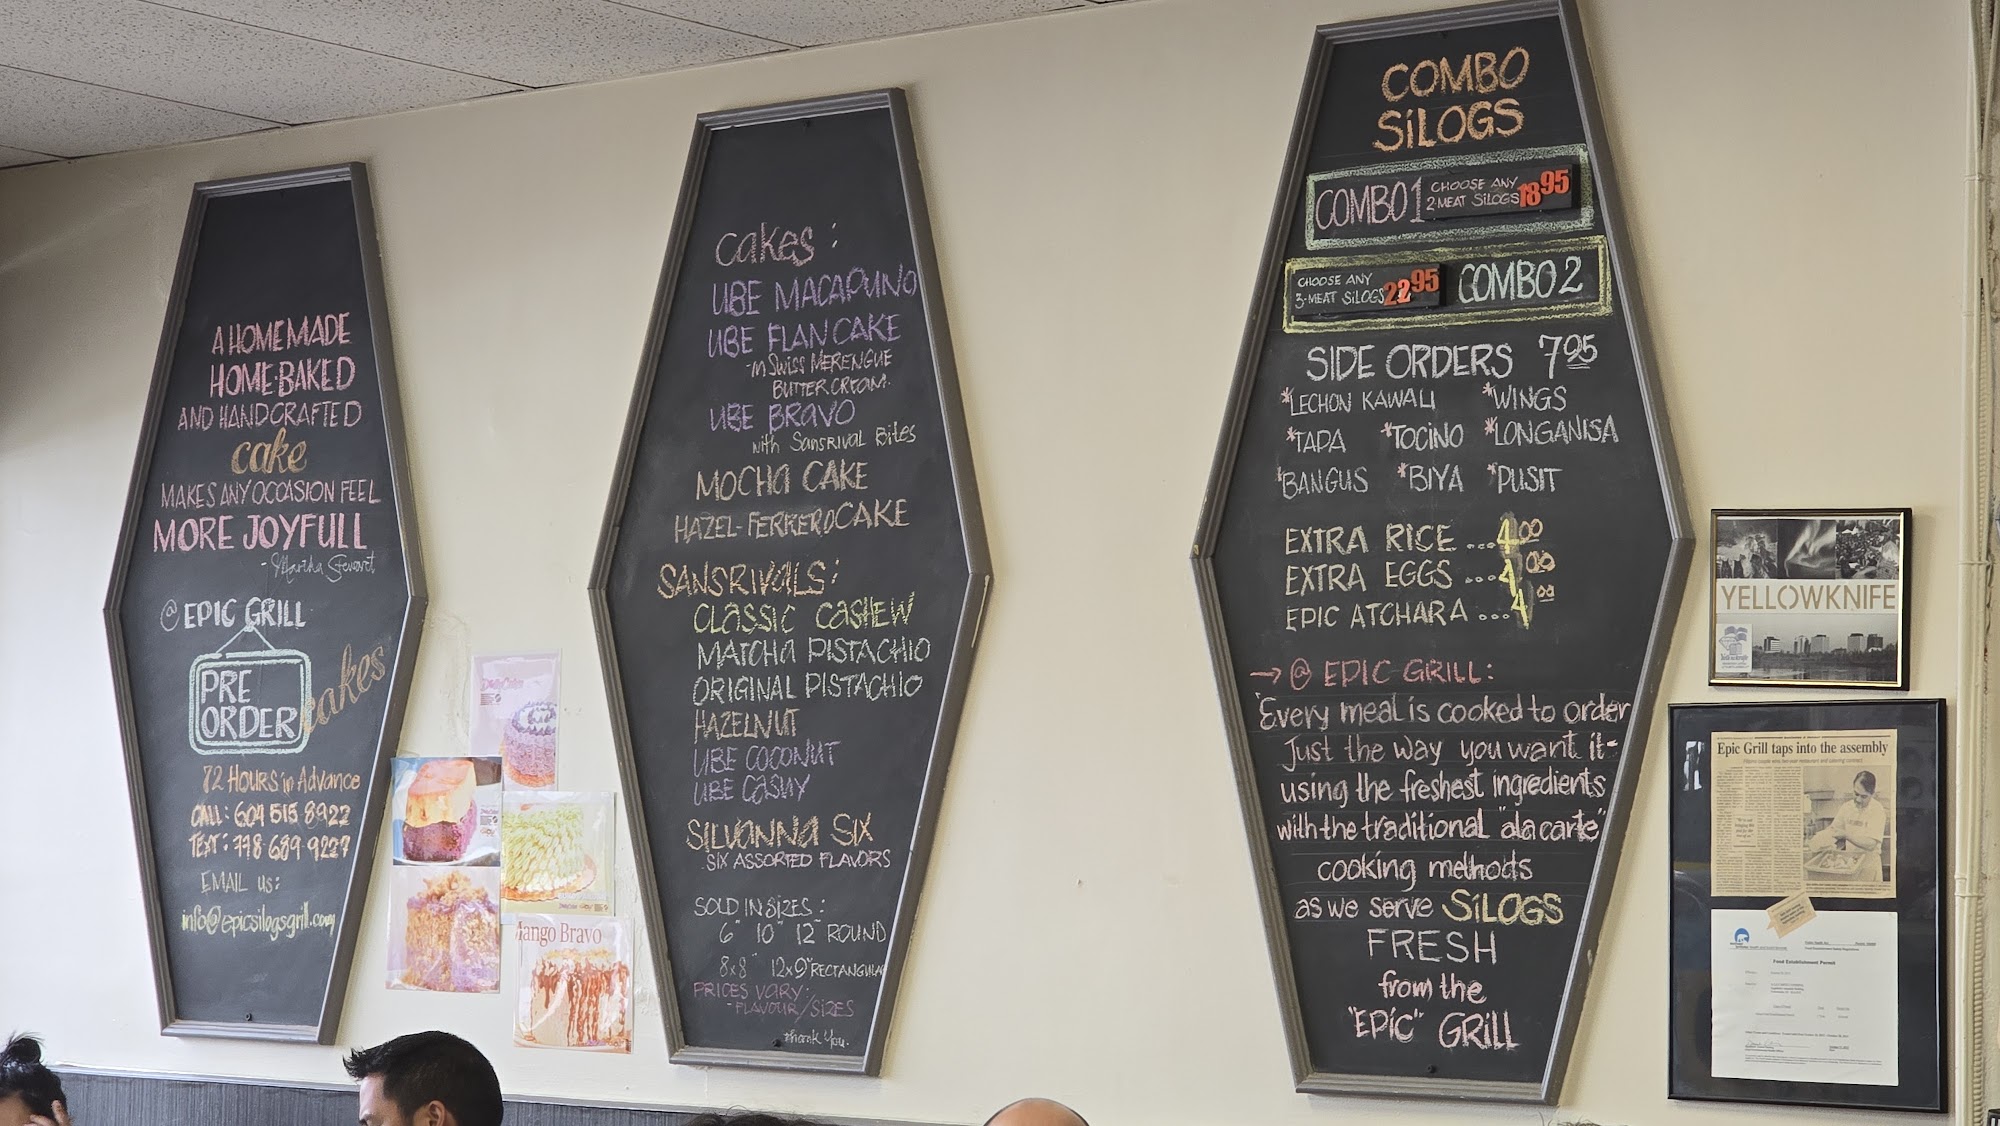 A HOMEMADE
HOME-BAKED
AND HANDCRAFTED
cake
MAKES ANY OCCASION FEEL
MORE JOYFULL
- Martha Stewart
@ EPIC GRILL
PRE
ORDER
cakes
72 HOURS in Advance
CALL: 604 515 8922
TEXT: 778 689-9227
EMAIL us:
info@epicsilogsgrill.com
Mango Bravo
cakes:
UBE MACAPUNO
UBE FLAN CAKE
-in SWISS MERENGUE
BUTTERCREAM.
UBE BRAVO
with Sansrival Bites
MOCHA CAKE
HAZEL-FERRERO CAKE
SANSRIVALS:
CLASSIC CASHEW
MATCHA PISTACHIO
ORIGINAL PISTACHIO
HAZELNUT
UBE COCONUT
UBE CASHY
SILVANNA SIX
SIX ASSORTED FLAVORS
SOLD IN SIZES:
6" 10" 12" ROUND
8x8" 12x9" RECTANGULAR
PRICES VARY:
- FLAVOUR/SIZES
thank you.
COMBO
SiLOGS
COMBO 1 CHOOSE ANY 2-MEAT SiLOGS 18.95
CHOOSE ANY 3-MEAT SiLOGS 22.95 COMBO 2
SIDE ORDERS 7.95
*LECHON KAWALI *WINGS
*TAPA *TOCINO *LONGANISA
*BANGUS *BIYA *PUSIT
EXTRA RICE ... 4.00
EXTRA EGGS .... 4.00
EPIC ATCHARA ... 4.00
→ @ EPIC GRILL:
'Every meal is cooked to order
Just the way you want it-
using the freshest ingredients
with the traditional "ala carte"
cooking methods
as we serve SiLOGS
FRESH
from the
"EPIC" GRILL
YELLOWKNIFE
Epic Grill taps into the assembly
Food Establishment Permit